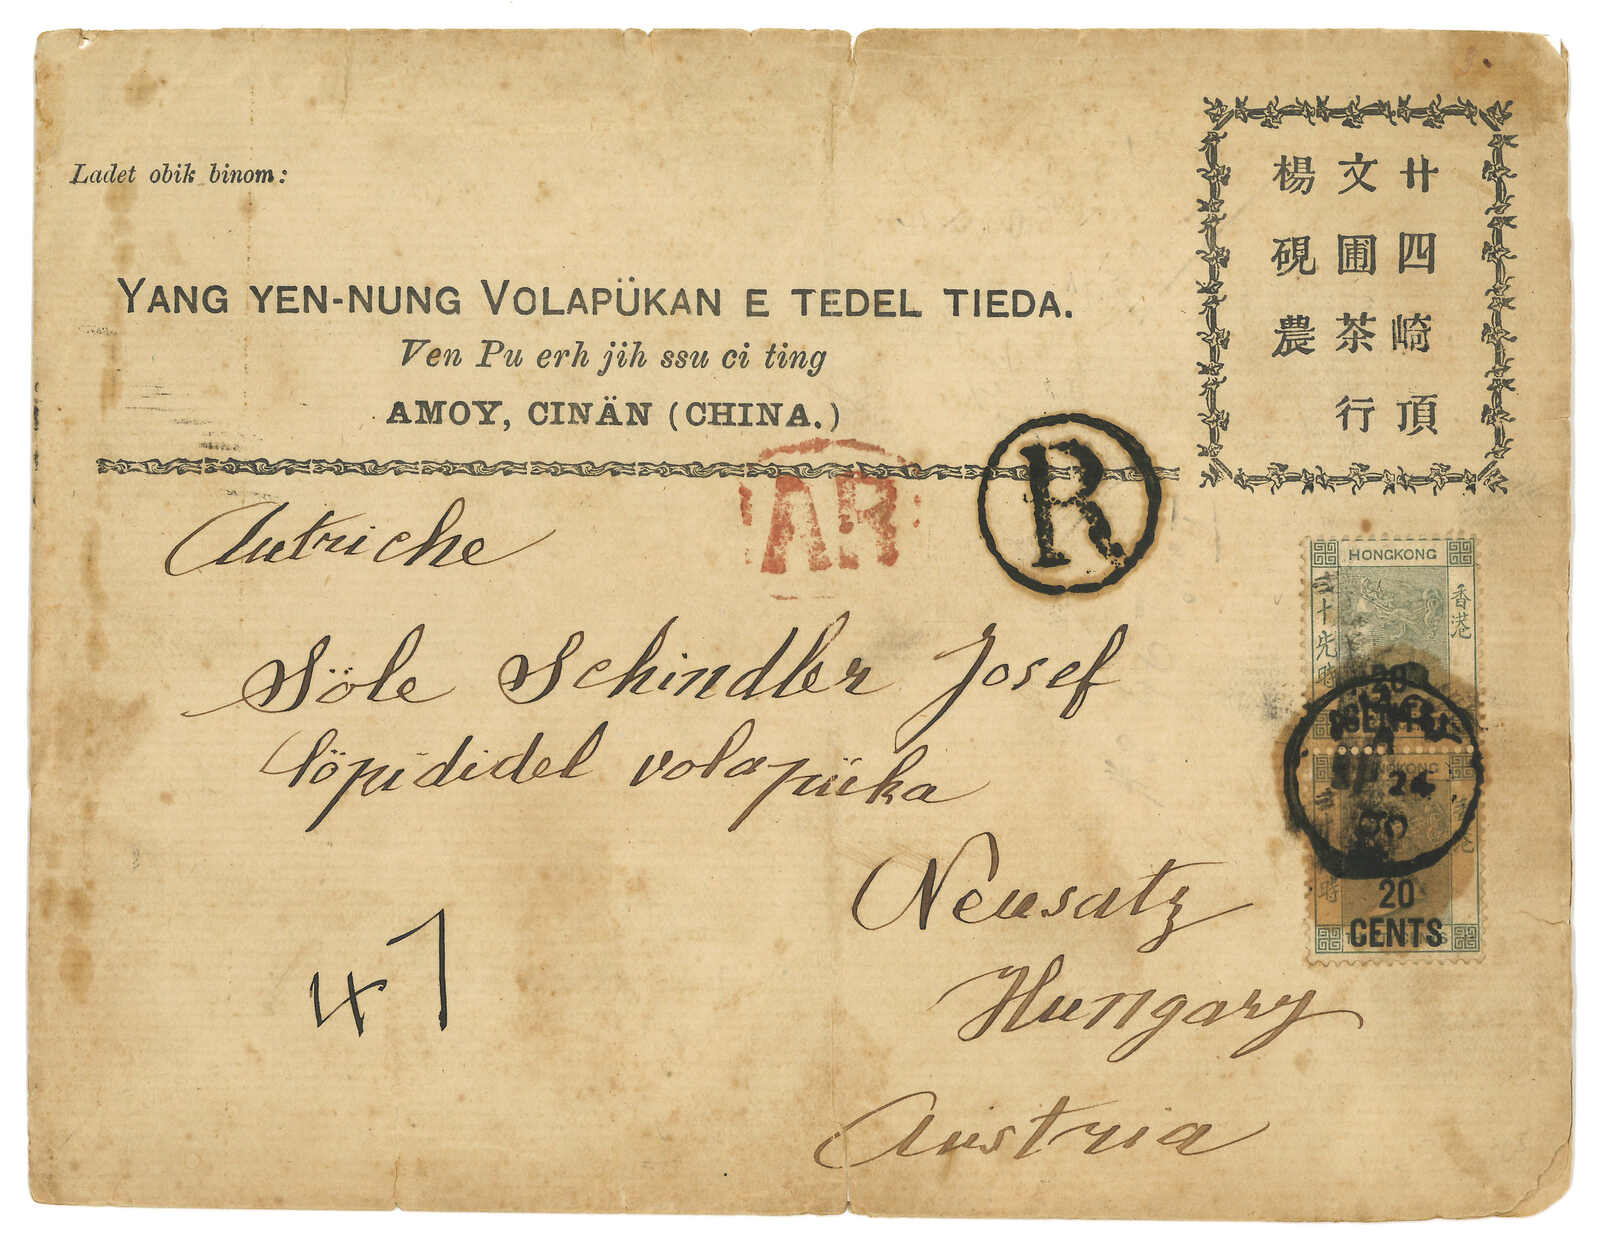 Ladet obik binom:
YANG YEN-NUNG VOLAPÜKAN E TEDEL TIEDA.
Ven Pu erh jih ssu ci ting
AMOY, CINÄN (CHINA.)
廿四崎頂
文圃茶行
楊硯農
AR
R
Autriche
Söle Schindler Josef
löpididel volapüka
Neusatz
Hungary
Austria
47
HONGKONG
香港
20
CENTS
A
24
90
HONGKONG
20
CENTS